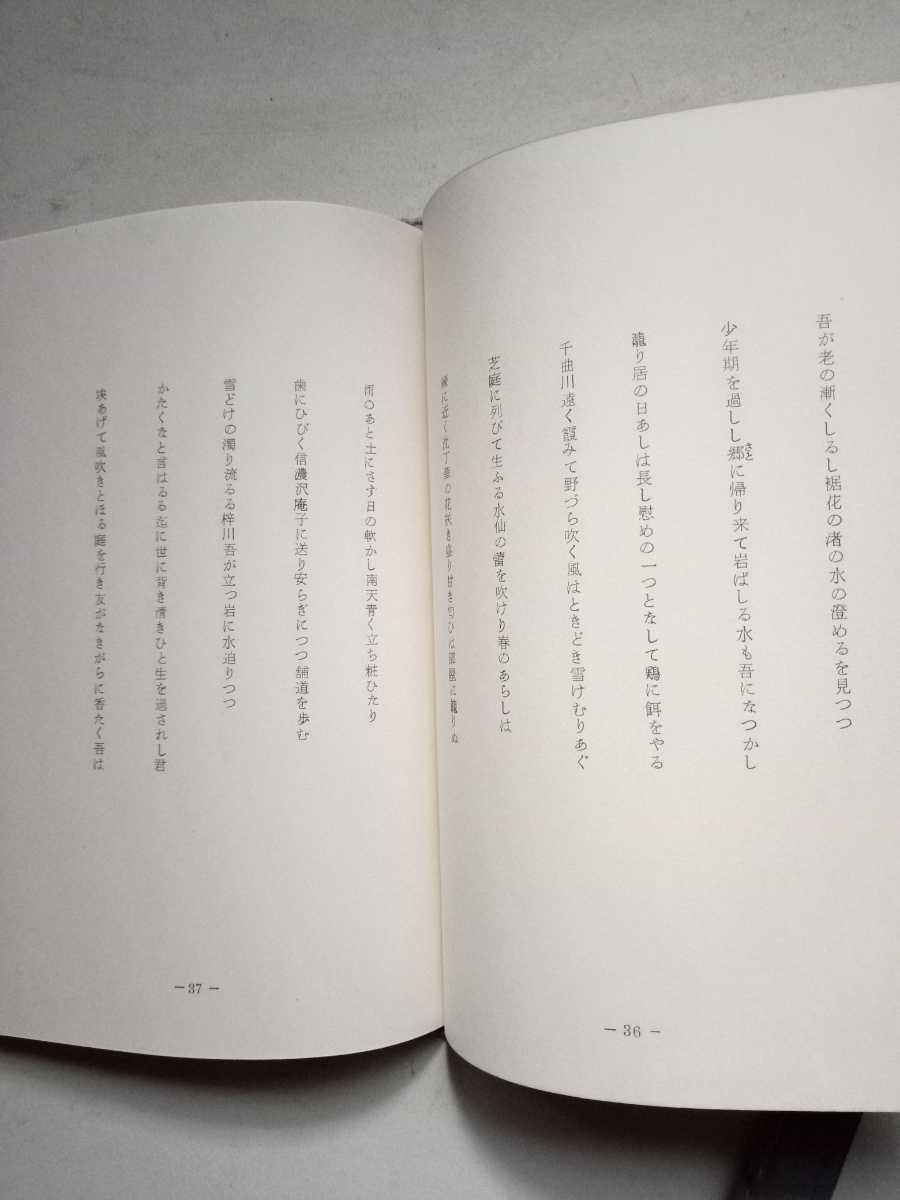 吾が老の漸くしるし裾花の渚の水の澄めるを見つつ
少年期を過しし郷に帰り来て岩ばしる水も吾になつかし
さと
籠り居の日あしは長し慰めの一つとなして鶏に餌をやる
千曲川遠く霞みて野づら吹く風はときどき雪けむりあぐ
芝庭に列びて生ふる水仙の蕾を吹けり春のあらしは
縁に近く沈丁華の花咲き盛り甘き匂ひは部屋に籠りぬ
— 36 —
雨のあと土にさす日の軟かし南天青く立ち粧ひたり
歯にひびく信濃沢庵子に送り安らぎにつつ舗道を歩む
雪どけの濁り流るる梓川吾が立つ岩に水迫りつつ
かたくなと言はるる迄に世に背き清きひと生を過されし君
埃あげて風吹きとほる庭を行き友がなきがらに香たく吾は
— 37 —